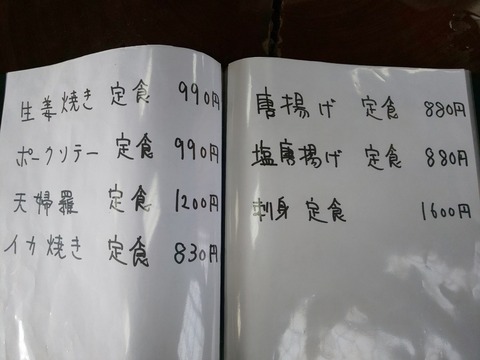 生姜焼き 定食 990円
ポークソテー 定食 990円
天婦羅 定食 1200円
イカ焼き 定食 830円
唐揚げ 定食 880円
塩唐揚げ 定食 880円
刺身 定食 1600円